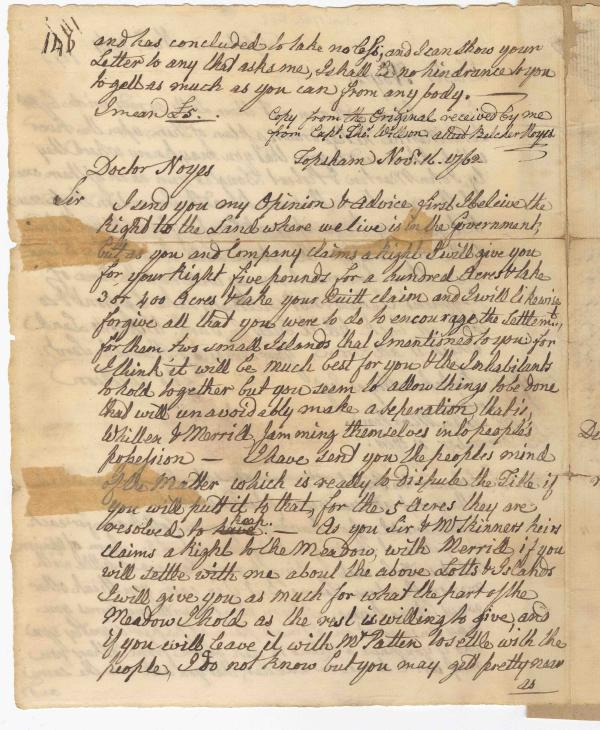 and has concluded to take no less, and I can show your
Letter to any that asks me, I shall be no hindrance to you
to gett as much as you can from any body. —
I mean £5. Copy from the Original received by me
from Capt. Tho.s Willson attest Belcher Noyes
Topsham Nov.r 16. 1762
Doctor Noyes
Sir I send you my Opinion & advice first, I beleive the
Right to the Land where we live is in the Government,
but as you and Company claims a Right I will give you
for your Right five pounds for a hundred Acres & take
3 or 400 Acres & take your Quitt claim and I will likewise
forgive all that you were to do to encourage the Settlemt.,
for them two small Islands that I mentioned to you for
I think it will be much best for you & the Inhabitants
to hold together but you seem to allow things to be done
that will unavoidably make a seperation, that is,
Whitten & Merrill Jamming themselves into people's
possession — I have sent you the peoples mind
of the Matter which is really to dispute the Title if
you will putt it to that, for the 5 Acres they are
resolved to keep. — As you Sir & Mr Skinners heirs
claims a Right to the Meadow, with Merrill if you
will settle with me about the above Lotts & Islands
I will give you as much for what the part of the
Meadow I hold as the rest is willing to give, and
if you will leave it with Mr Patten to settle with the
people, I do not know but you may gett pretty near
as